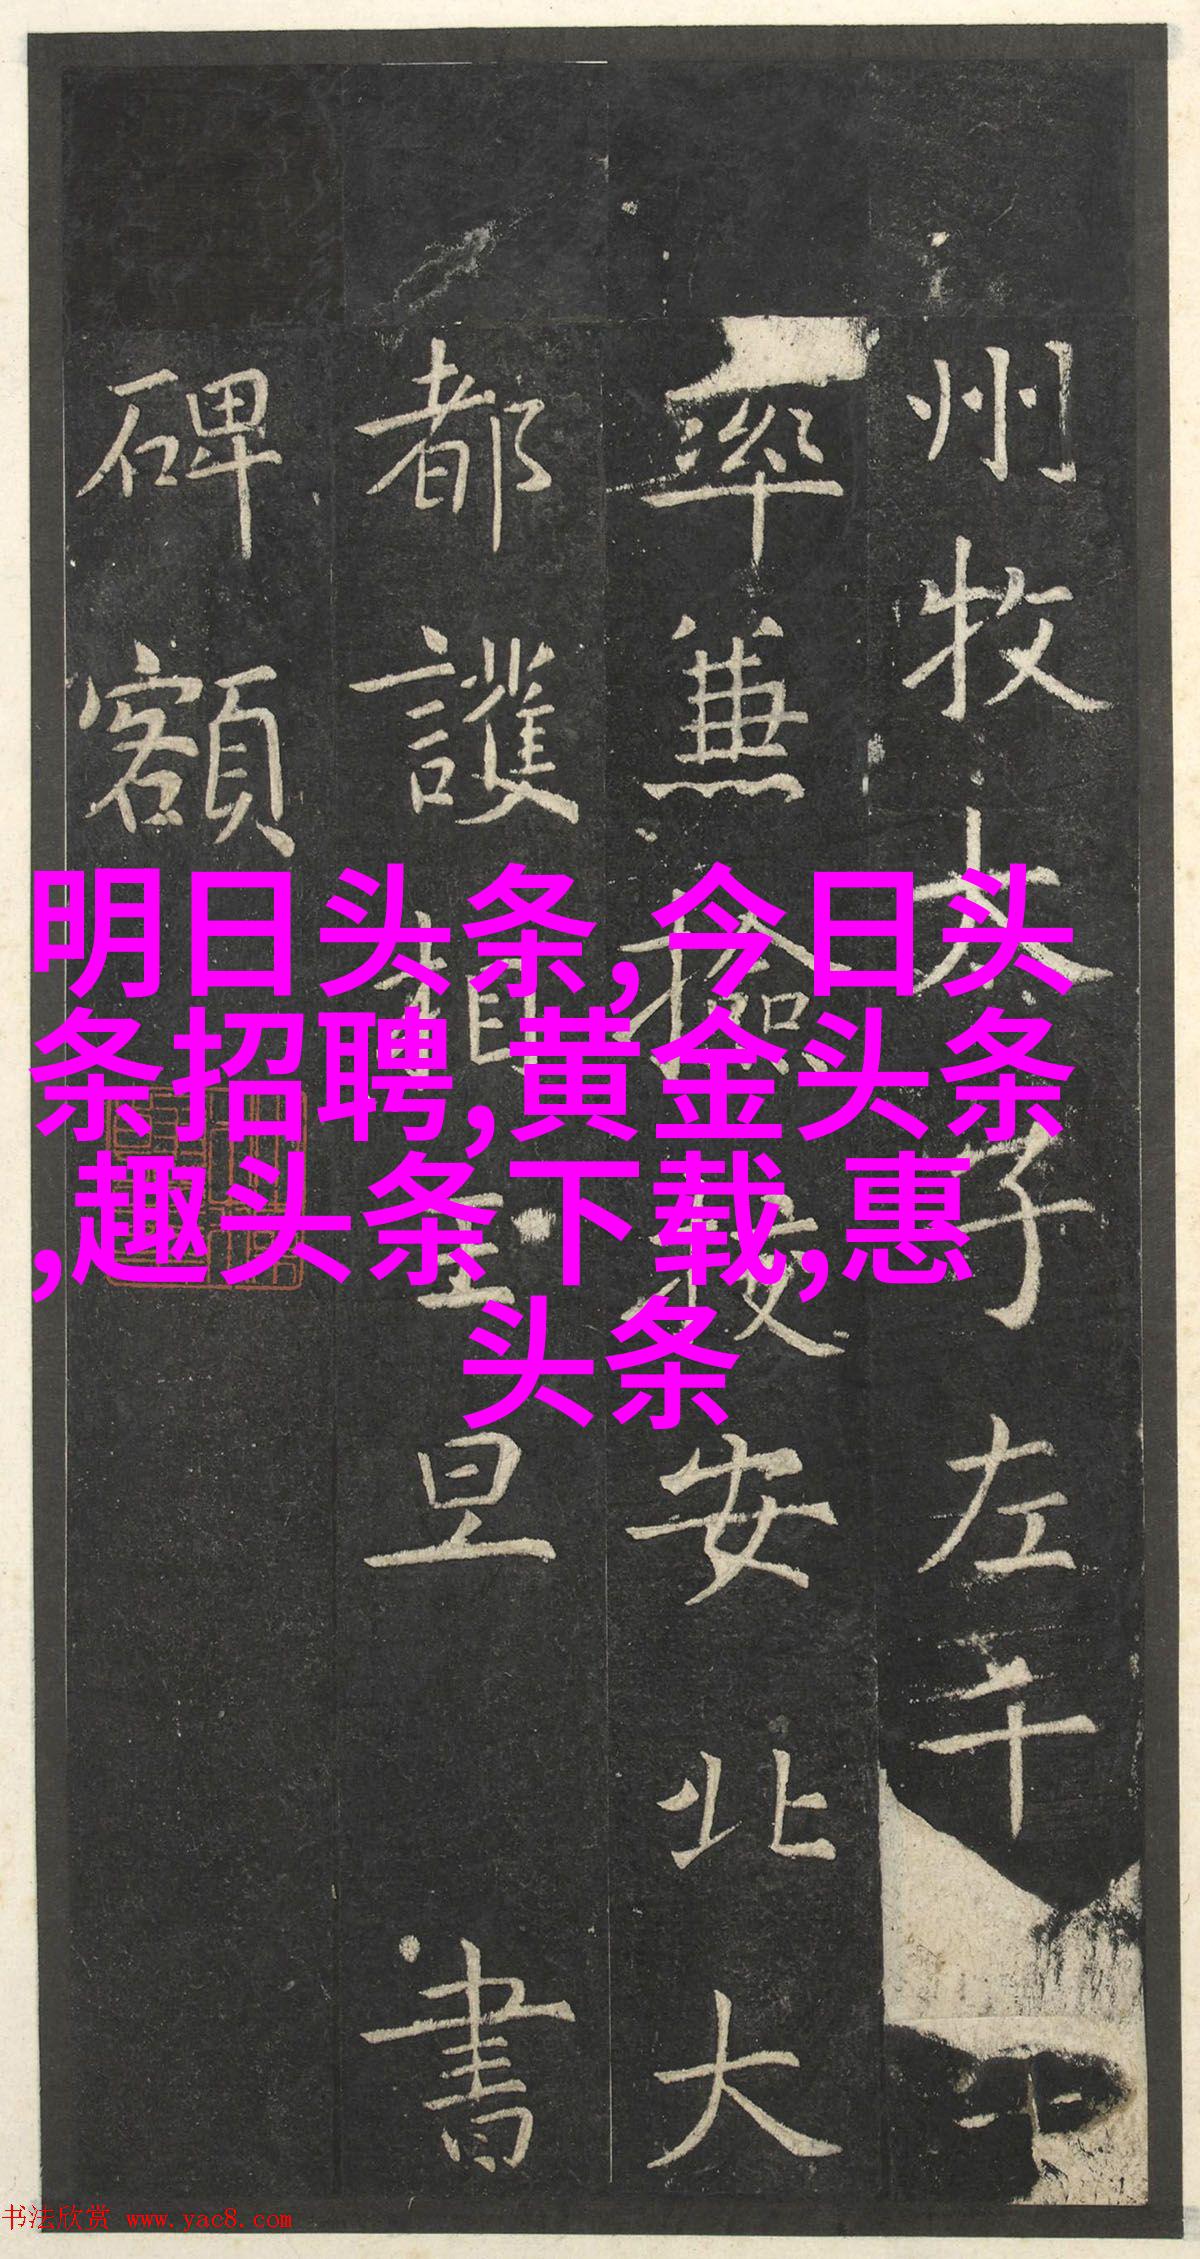 州牧太子左千
率兼撿挍安北大
都護相王旦書
碑額
明日头条,今日头
条招聘,黄金头条
,趣头条下载,惠
头条
书法欣赏 www.yac8.com